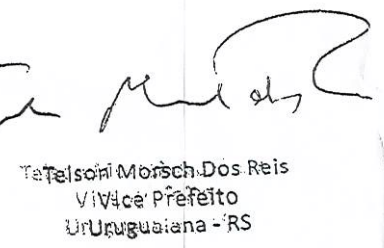 Telson Morsch Dos Reis
Vice Prefeito
Uruguaiana - RS